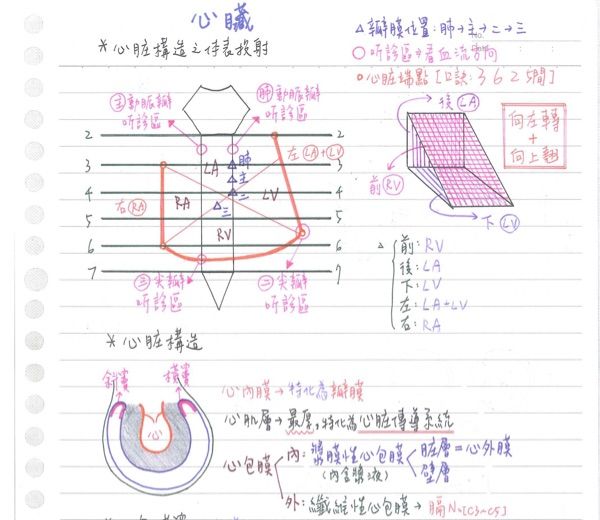 心臟
*心脏構造之体表投射
△瓣膜位置:肺→主→二→三
○听診區⇒看血流方向
○心脏端點[口訣:3 6 2 5間]
主動脈瓣
听診區
肺動脈瓣
听診區
2 2
3 3
4 4
5 5
6 6
7 7
左(LA+LV)
LA
肺
主
二
三
LV
RA
右RA
RV
三尖瓣
听診區
二尖瓣
听診區
後LA
前RV
下LV
向左轉
+
向上翻
△
前:RV
後:LA
下:LV
左:LA+LV
右:RA
*心脏構造
斜竇 橫竇
心
心內膜→特化為瓣膜
心肌層→最厚,特化為心脏傳導系統
心包膜
內:漿膜性心包膜
(內含漿液)
脏層=心外膜
壁層
外:纖維性心包膜→膈N.[C3~C5]